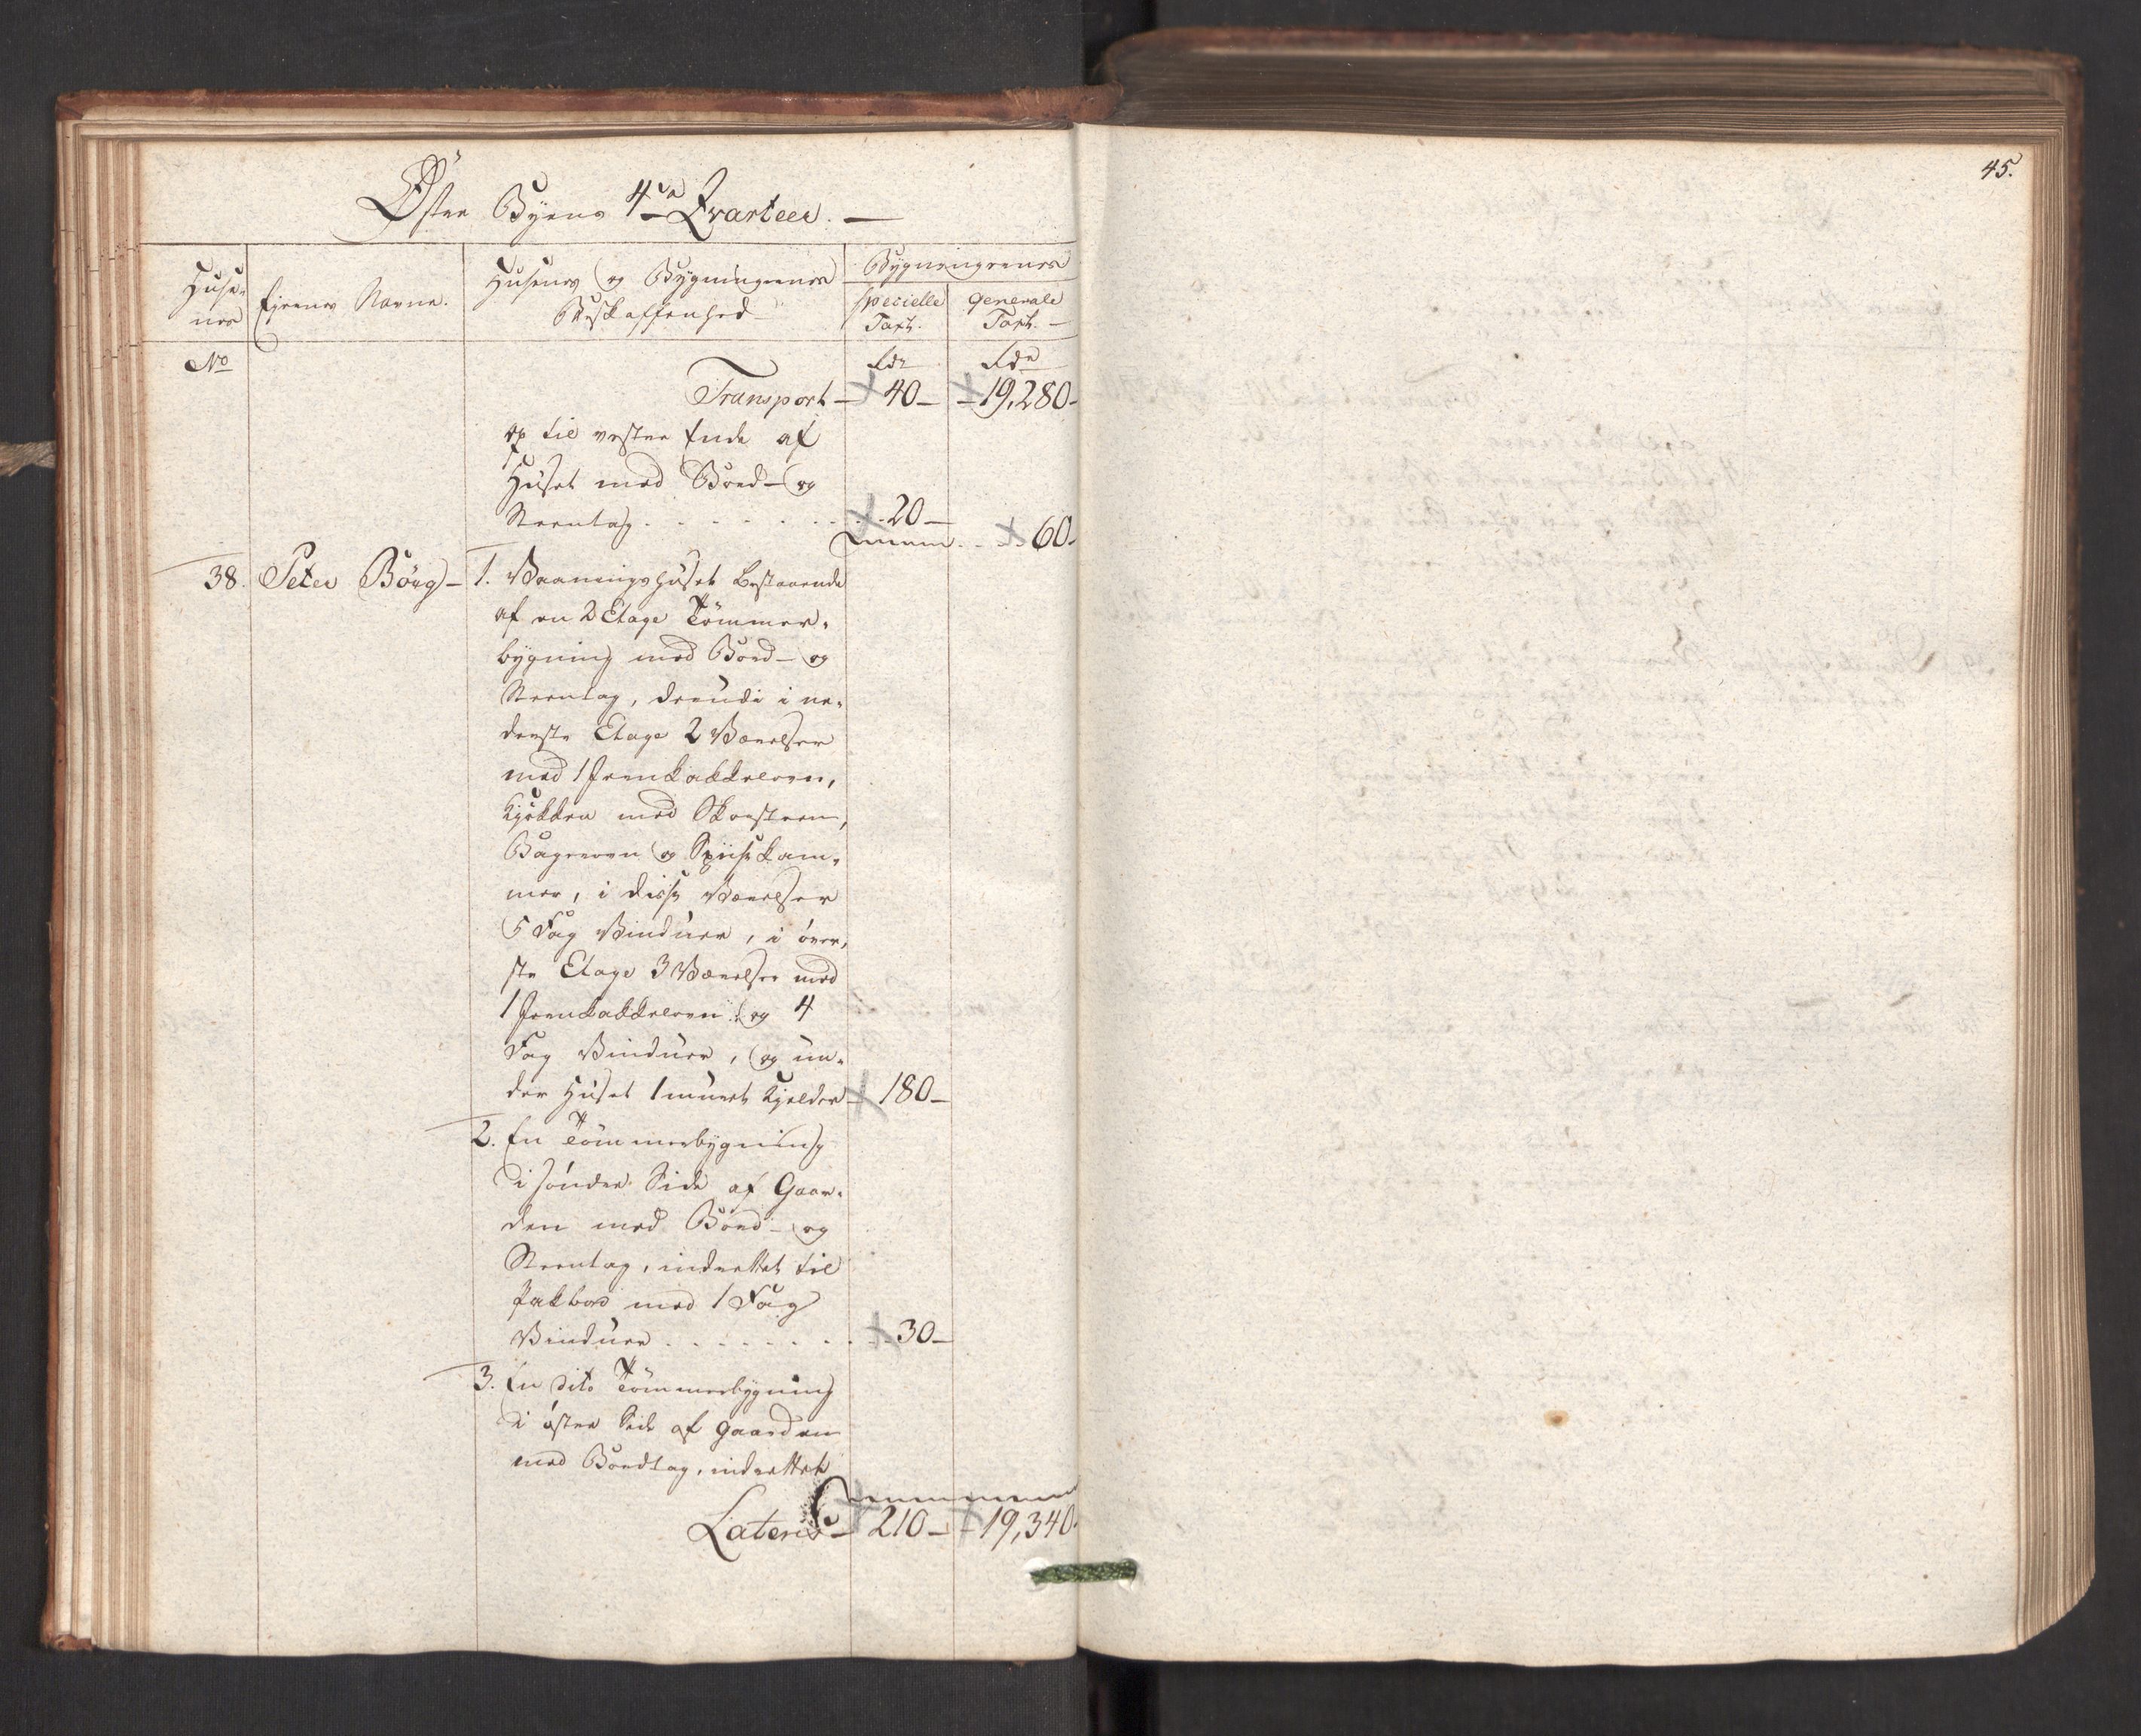 45.
Øster Byens 4de Qvarteer. —
Huse-
nes
Ejernes Navne.
Husenes og Bygningernes
Beskaffenhed
Bygningernes
specielle
Taxt.
generale
Taxt. —
No
Rdr
Rdr
Transport — 40 — 19,280-
op til vestre Ende af
Huset med Bord- og
Steentag . . . . . . . . 20 —
60.
38. Peter Börg — 1. Vaaningshuset bestaaende
af en 2 Etage Tömmer-
bÿgning med Bord- og
Steentag, deriudi i ne-
derste Etage 2 Værelser
med 1 Jernkakkelovn,
Kjökken med Skorsteen,
Bagerovn og Spiisekam-
mer, i disse Værelser
5 Fag Vinduer, i över-
ste Etage 3 Værelser med
1 Jernkakkelovn og 4
Fag Vinduer, og un-
der Huset 1 muret Kjelder — 180 —
2. En Tömmerbÿgning
i sönder Side af Gaar-
den med Bord- og
Steentag, indrettet til
Pakbod med 1 Fag
Vinduer . . . . . . . . 30 —
3. En dito Tömmerbÿgning
i öster Side af Gaarden
med Bordtag, indrettet
Lateris — 210 — 19,340.